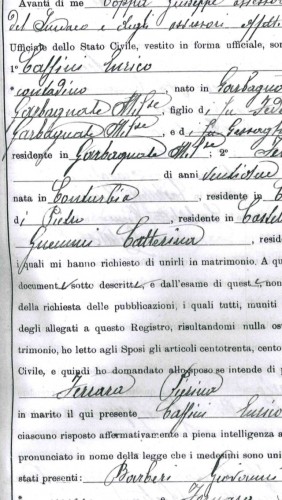 Avanti di me Coppia Giuseppe assessor
del Sindaco e degli assessori effetti
Ufficiale dello Stato Civile, vestito in forma ufficiale, son
1° Caffini Enrico
contadino, nato in Garbagna
Garbagnate Milse, figlio di fu Fede
Garbagnate Milse, e di
residente in Garbagnate Mil; 2° Fer
di anni ventinove
nata in Conturbia, residente in C
di Pietro, residente in Castel
Guerrini Catterina, resid
i quali mi hanno richiesto di unirli in matrimonio. A qu
documenti sotto descritti, e dall'esame di questi non
della richiesta delle pubblicazioni, i quali tutti, muniti
degli allegati a questo Registro, risultandomi nulla ost
trimonio, ho letto agli Sposi gli articoli centotrenta, cento
Civile, e quindi ho domandato allo sposo se intende di p
Ferrara Pierina
in marito il qui presente Caffini Enrico
ciascuno risposto affermativamente a piena intelligenza a
pronunciato in nome della legge che i medesimi sono uni
stati presenti: Barberi Giovanni